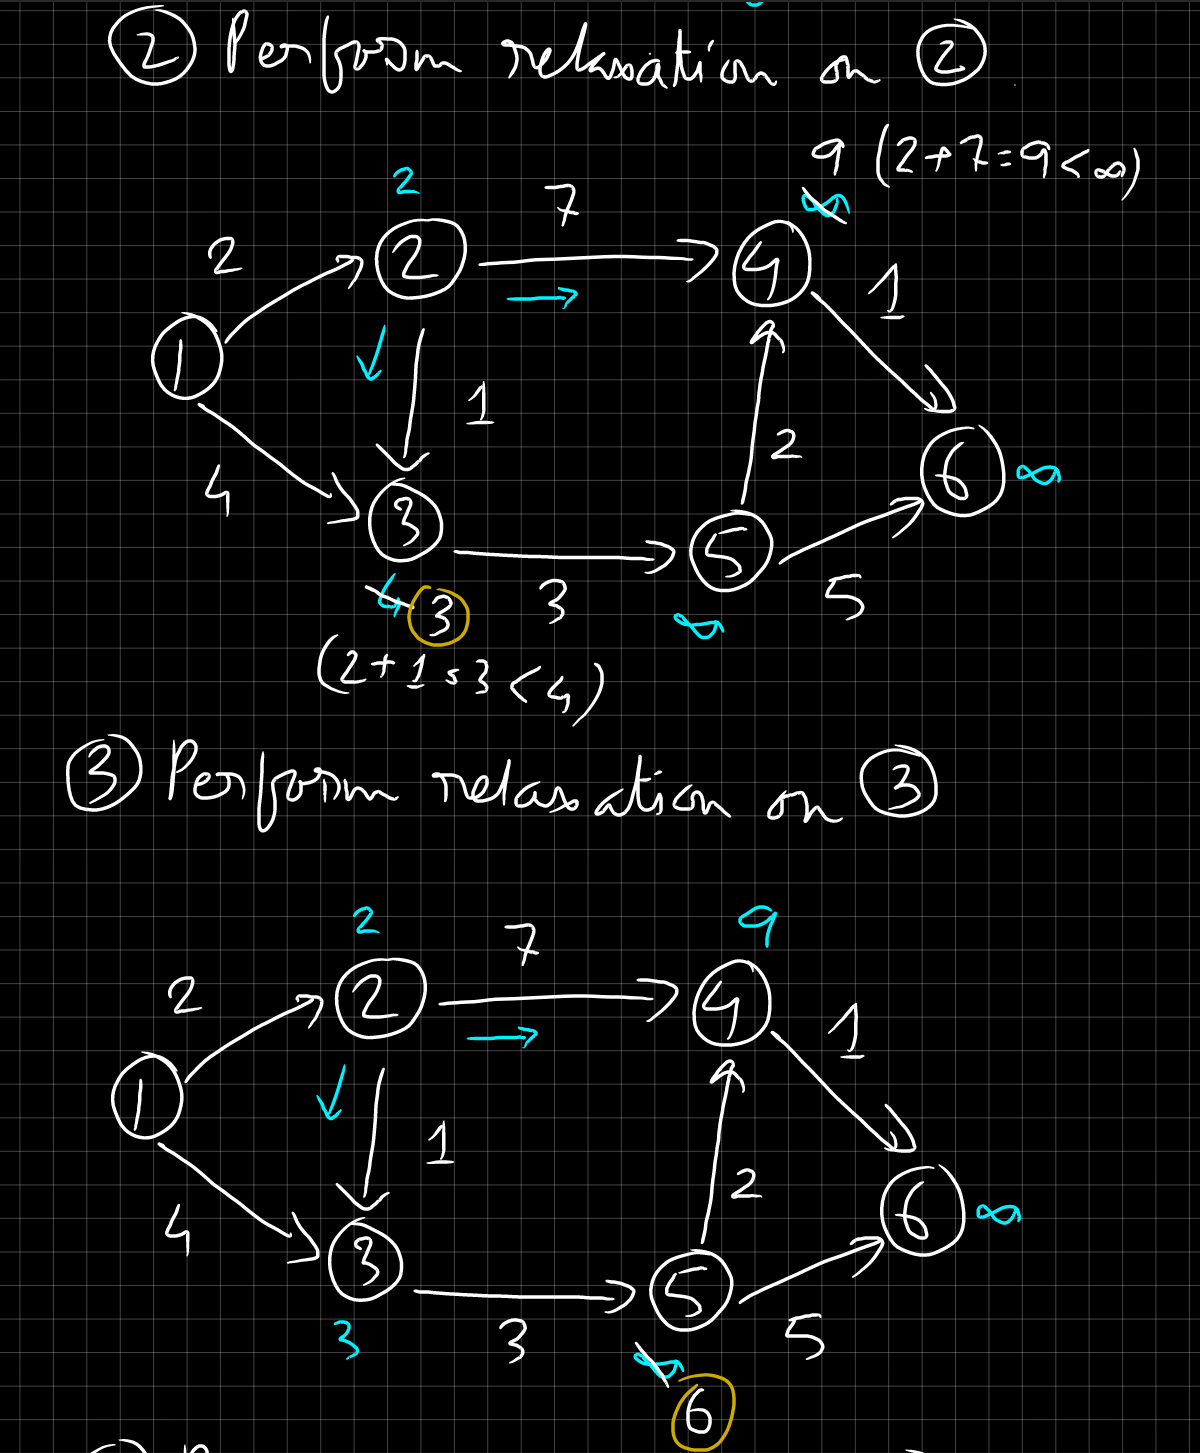 ② Perform relaxation on ②
9 (2+7=9<∞)
2
7
∞
2
2
4
1
1
1
4
2
3
6
∞
5
4
3
3
∞
5
(2+1=3<4)
③ Perform relaxation on ③
2
7
9
2
2
4
1
1
1
4
2
3
6
∞
5
3
3
5
∞
6